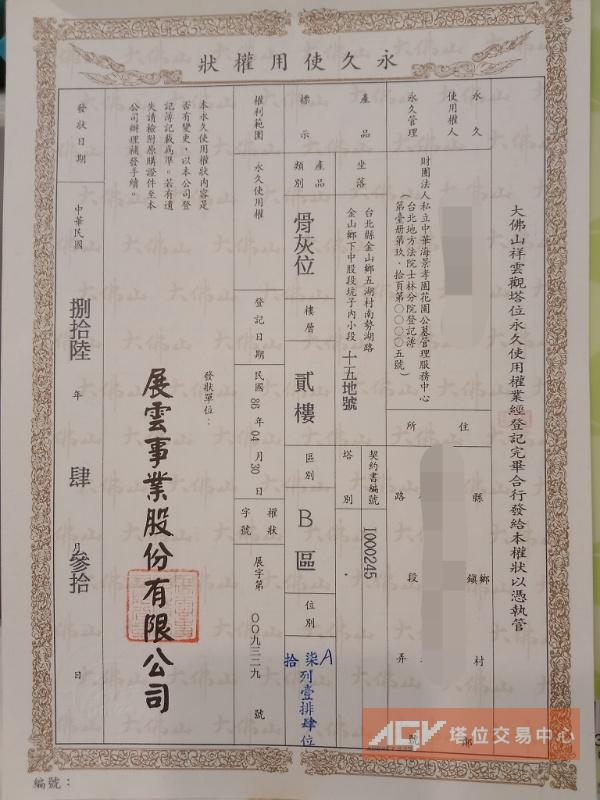 永久使用權狀
大佛山祥雲觀塔位永久使用權業經登記完畢合行發給本權狀以憑執管
永久
使用權人
住
所
縣
鄉
鎮
村
路
段
弄
號
永久管理
財團法人私立中華海景孝園花園公墓管理服務中心
（台北地方法院士林分院登記簿
第壹冊第玖．拾頁第○○○○五號）
產品
標示
坐落
台北縣金山鄉五湖村南勢湖路
金山鄉下中股段坑子內小段
十五地號
契約書編號
1000245
塔別
產品
類別
骨灰位
樓層
貳樓
區別
B區
位別
A
柒列壹排肆位
拾
權利範圍
永久使用權
登記日期
民國86年04月30日
權狀
字號
展字第○○九三二九號
本永久使用權狀內容是
否有變更，以本公司登
記簿記載為準。若有遺
失請檢附原購證件至本
公司辦理補發手續。
發狀單位：
展雲事業股份有限公司
發狀日期
中華民國捌拾陸年肆月參拾日
編號：
ACV 塔位交易中心